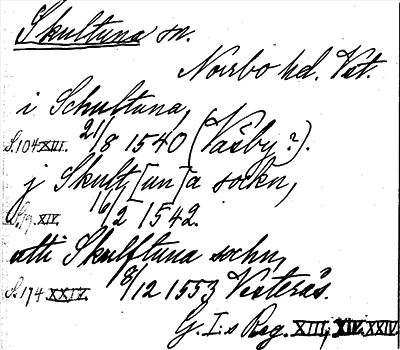 Skultuna sn.
Norrbo hd. Vst.
i Schultuna,
S. 104 XIII. 21/8 1540 (Väsby?).
j Skult[un]a sockn,
XIV. 16/2 1542.
utti Skulftuna sochn,
S. 174 XXIV. 8/12 1553 Vesterås.
G. I:s Reg. XIII, XIV. XXIV.